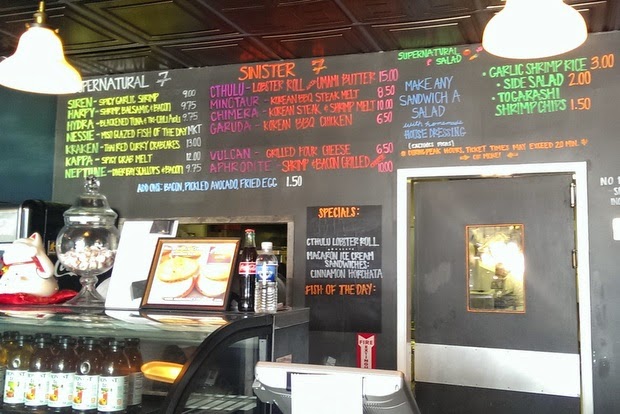 SUPERNATURAL 7
SIREN - SPICY GARLIC SHRIMP 9.75
HARPY - SHRIMP, BALSAMIC & BACON 9.75
HYDRA - BLACKENED TUNA
NESSIE - MISO GLAZED FISH OF THE DAY MKT
KRAKEN - THAI RED CURRY CRABCAKES 13.00
KAPPA - SPICY CRAB MELT 12.00
NEPTUNE - SCALLOPS & BACON 9.75
SINISTER 7
CTHULU - LOBSTER ROLL UMAMI BUTTER 15.00
MINOTAUR - KOREAN BBQ STEAK MELT 8.50
CHIMERA - KOREAN STEAK & SHRIMP MELT 10.00
GARUDA - KOREAN BBQ CHICKEN 8.50
VULCAN - GRILLED FOUR CHEESE 6.50
APHRODITE - SHRIMP & BACON GRILLED 10.00
ADD ONS: BACON, PICKLED AVOCADO, FRIED EGG 1.50
SUPERNATURAL SALAD
MAKE ANY
SANDWICH A
SALAD
WITH homemade
HOUSE DRESSING
(EXCLUDES MELTS)
DURING PEAK HOURS, TICKET TIMES MAY EXCEED 20 MIN.
OR MORE!
• GARLIC SHRIMP RICE 3.00
• SIDE SALAD 2.00
• TOGARASHI
SHRIMP CHIPS 1.50
SPECIALS:
CTHULU LOBSTER ROLL
MACARON ICE CREAM
SANDWICHES:
CINNAMON HORCHATA
FISH OF THE DAY:
FIRE
NO